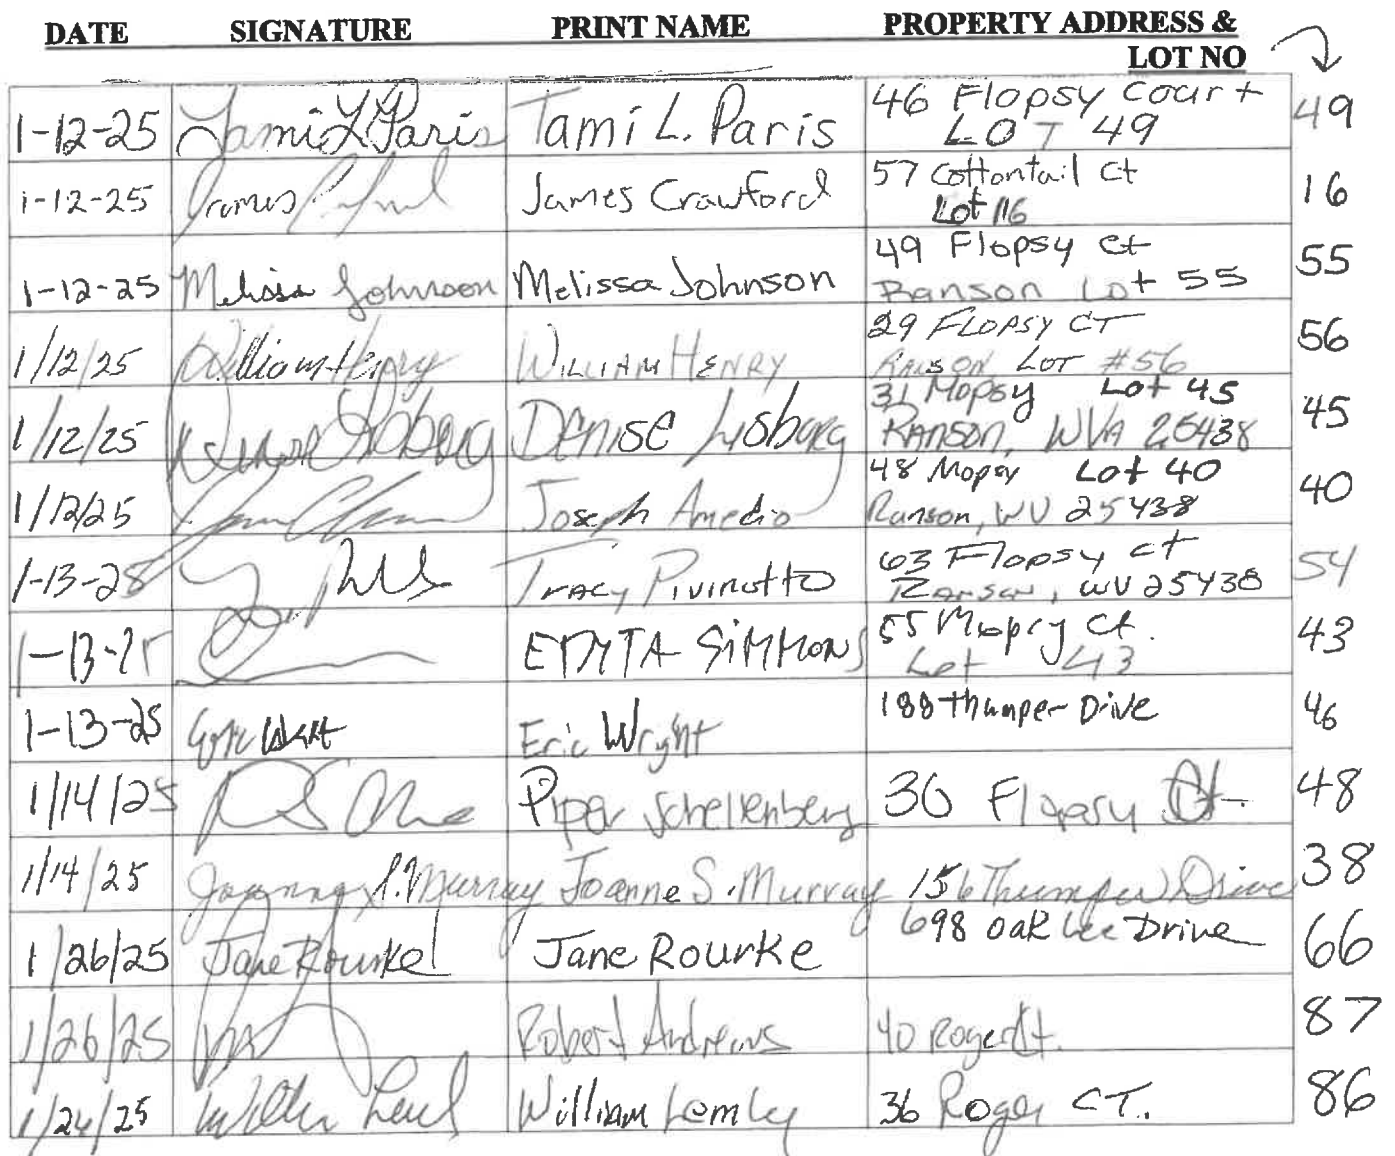 DATE SIGNATURE PRINT NAME PROPERTY ADDRESS &
LOT NO
1-12-25 Tami L Paris Tami L. Paris 46 Flopsy Court 49
LOT 49
1-12-25 James James Crawford 57 Cottontail Ct 16
Lot 16
1-12-25 Melissa Johnson Melissa Johnson 49 Flopsy Ct 55
Ranson Lot 55
1/12/25 William Henry WILLIAM HENRY 29 FLOPSY CT 56
RANSON LOT #56
1/12/25 Denise Losburg Denise Losburg 31 Mopsy Lot 45 45
RANSON, WVA 25438
1/12/25 Joseph Amedio 48 Mopsy Lot 40 40
Ranson, WV 25438
1-13-25 Tracy Pivirotto 63 Flopsy ct 54
Ranson, WV 25438
1-13-25 EDYTA SIMMONS 55 Mopsy Ct. 43
Lot 43
1-13-25 Eric Wright 188 Thumper Drive 46
1/14/25 Piper Schellenberg 36 Flopsy Ct. 48
1/14/25 Joanne S. Murray Joanne S. Murray 156 Thumper Drive 38
1/26/25 Jane Rourke Jane Rourke 698 Oak Lee Drive 66
1/26/25 Robert Andrews 40 Roger Ct. 87
1/26/25 William Lemley 36 Roger CT. 86